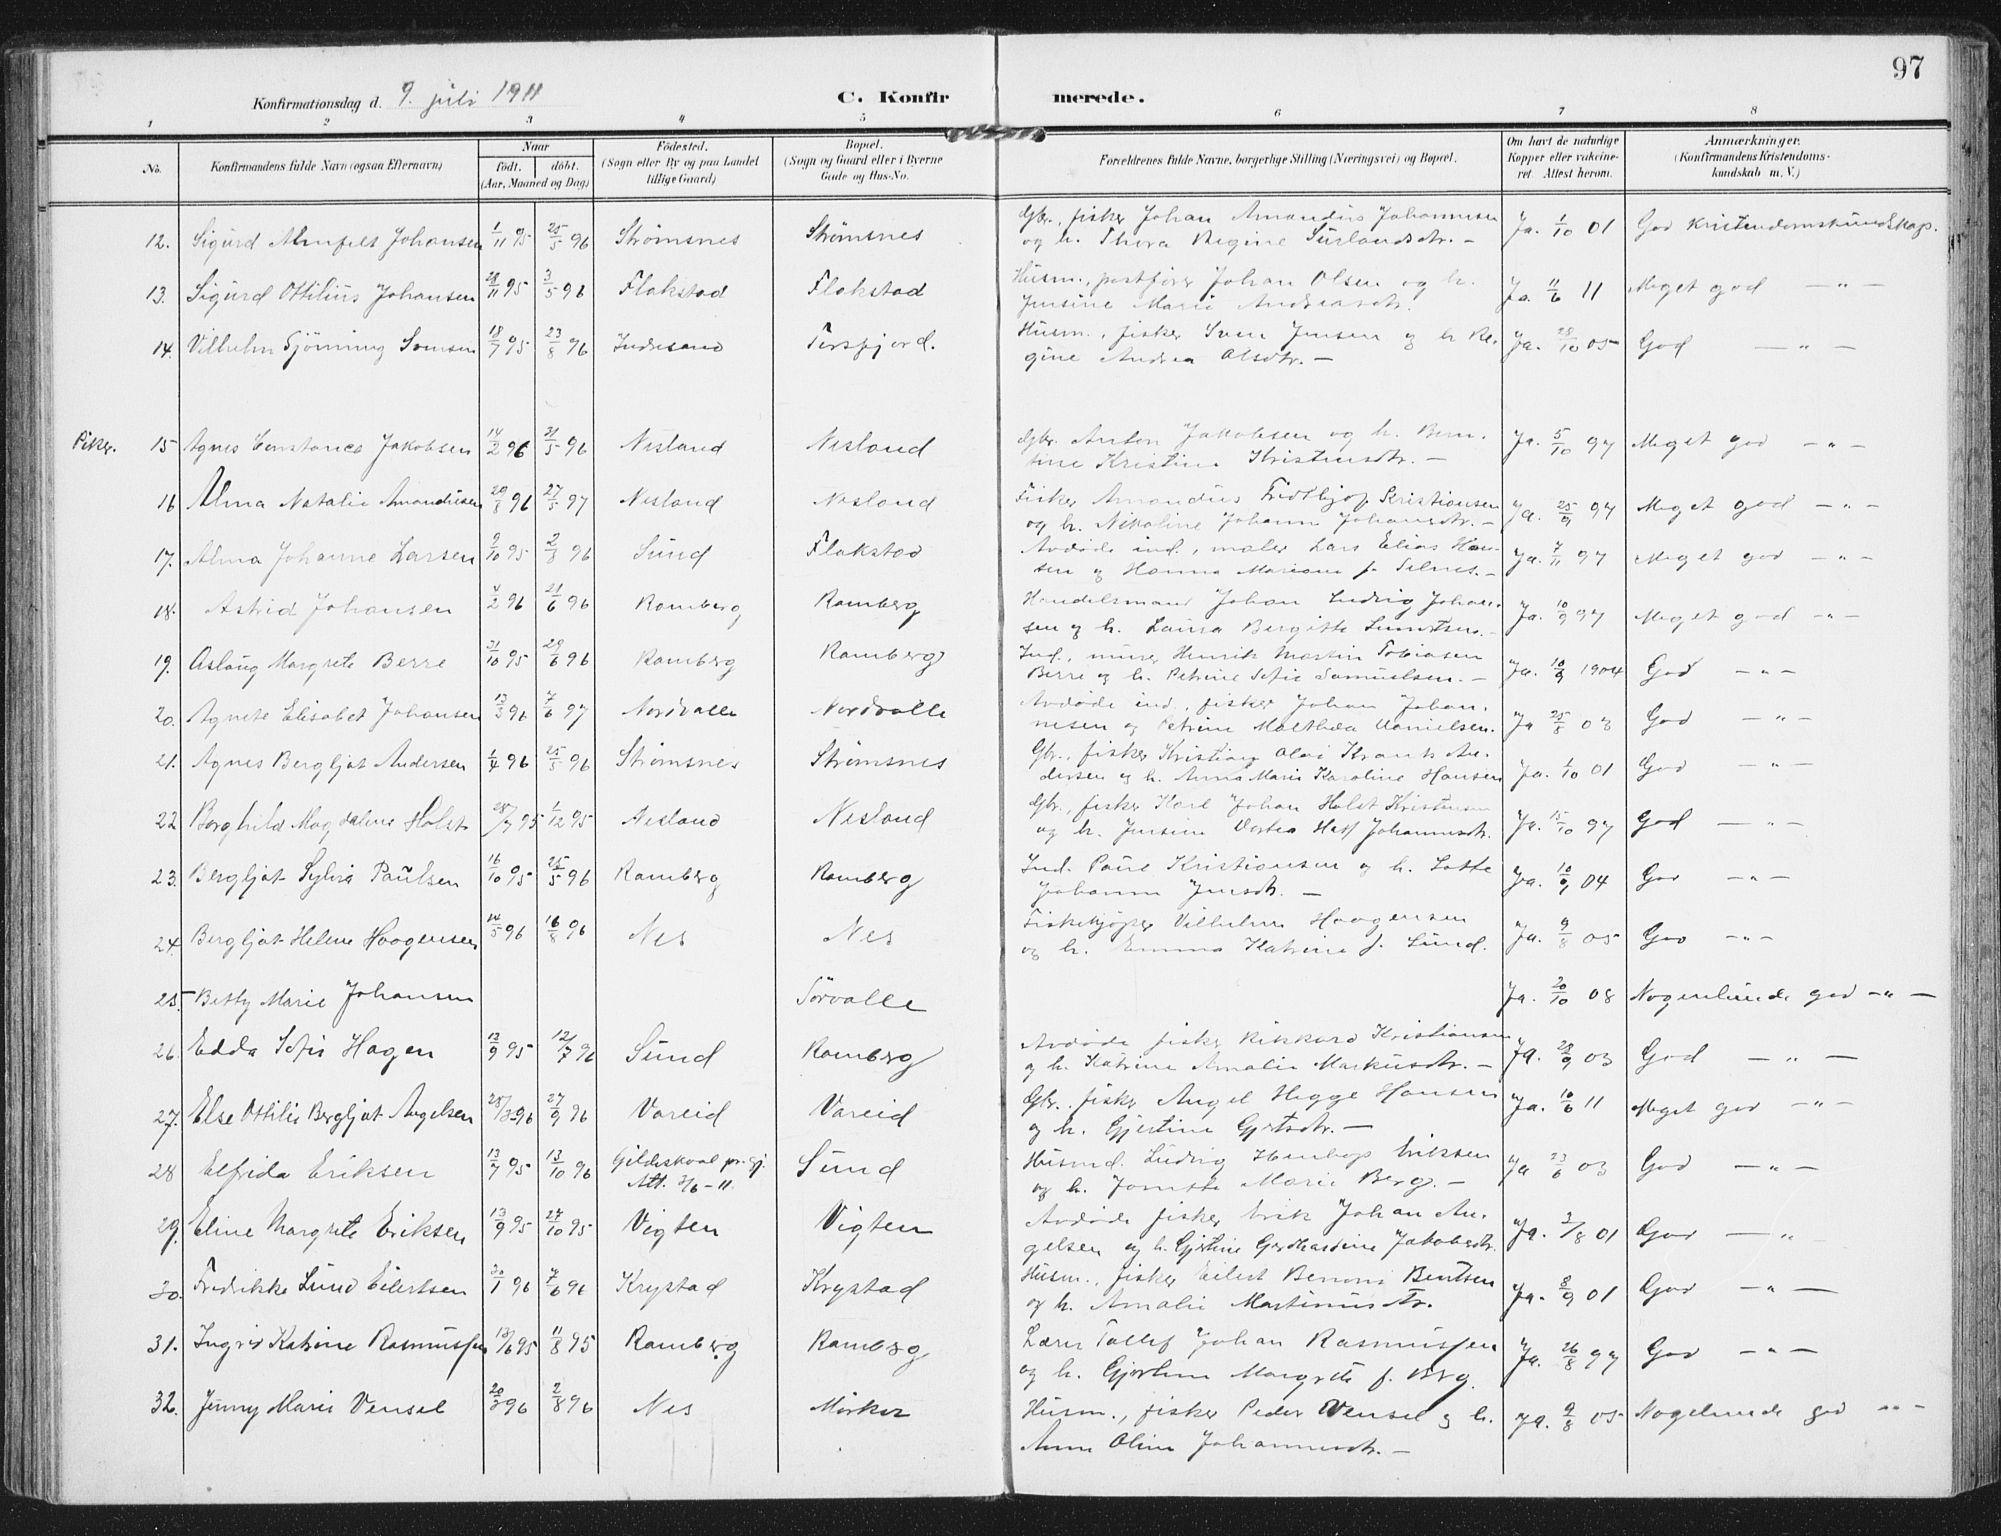 97
Konfirmationsdag d. 9. juli 1911 C. Konfirmerede.
1 2 3 4 5 6 7 8
No. Konfirmandens fulde Navn (ogsaa Efternavn) Naar født. døbt. (Aar, Maaned og Dag) Fødested. (Sogn eller By og paa Landet tillige Gaard) Bopæl. (Sogn og Gaard eller i Byerne Gade og Hus-No. Forældrenes fulde Navne, borgerlige Stilling (Næringsvei) og Bopæl. Om havt de naturlige Kopper eller vakcineret. Attest herom. Anmærkninger. (Konfirmandens Kristendomskundskab m. V.)
12. Sigurd Almfelt Johansen 1/11 95 25/5 96 Strømsnes Strømsnes Gbr., fisker Johan Amandus Johannesen Ja. 1/10 01 God Kristendomskundskap.
og h. Thora Regine Surlandsdtr. —
13. Sigurd Ottilius Johansen 28/11 95 3/5 96 Flakstad Flakstad Husm., postfører Johan Olsen og h. Ja. 11/6 11 Meget god — " —
Jensine Marie Andreasdtr.
14. Vilhelm Tjønning Svensen 18/7 95 23/8 96 Indresand Torsfjord. Husm., fisker Sven Jensen og h. Re- Ja. 28/10 05 God — " —
gine Andrea Olsdtr. —
Piker. 15 Agnes Constance Jakobsen 14/2 96 31/5 96 Nesland Nesland Gbr. Anton Jakobsen og h. Bern- Ja. 5/10 97 Meget god — " —
tine Kristine Kristensdtr. —
16 Alma Natalie Amandusen 29/8 96 27/5 97 Nesland Nesland Fisker Amandus Fridthjof Kristiansen Ja. 25/9 97 Meget god — " —
og h. Nikoline Johanna Johansdtr. —
17. Alma Johanne Larsen 9/10 95 2/8 96 Sund Flakstad Avdøde ind., maler Lars Elias Han- Ja. 7/11 97 Meget god — " —
sen og Hanna Mariane f. Selnes. —
18. Astrid Johansen 4/2 96 21/6 96 Ramberg Ramberg Handelsmand Johan Ludvig Johan- Ja. 10/9 97 Meget god — " —
sen og h. Laura Bergitte
19. Aslaug Margrete Berre 31/10 95 29/6 96 Ramberg Ramberg Ind., murer Henrik Martin Tobiasen Ja. 10/9 1904 God — " —
Berre og h. Petrine Sofie Samuelsen. —
20. Agnete Elisabet Johansen 13/3 96 7/6 97 Nordvalle Nordvalle Avdøde ind., fisker Johan Johan- Ja 25/8 03 God — " —
nesen og Petrine Malthea Danielsen.
21. Agnes Bergljot Andersen 1/4 96 25/5 96 Strømsnes Strømsnes Gbr., fisker Kristian Olai Krank An- Ja. 1/10 01 God — " —
dersen og h. Anna Marie Karoline Hansen
22 Borghild Magdalene Holst 28/7 95 1/12 95 Nesland Nesland Gbr., fisker Karl Johan Holst Kristensen Ja. 15/10 97 God — " —
og h. Jensine Dortea Johannesdtr.
23. Bergljot Sylvia Paulsen 16/10 95 25/5 96 Ramberg Ramberg Ind. Paul Kristiansen og h. Lotte Ja. 10/9 04 God — " —
Johanna Jensdtr. —
24. Bergljot Helene Haagensen 14/5 96 16/8 96 Nes Nes Fiskekjøper Vilhelm Haagensen Ja. 9/8 05 God — " —
og h. Emma Katrine f. Lund.
25. Betty Marie Johansen Sørvalle Ja. 20/10 08 Nogenlunde god — " —
26. Edda Sofie Hagen 13/9 95 12/7 96 Sund Ramberg Avdøde fisker Rikkard Kristiansen Ja. 28/9 03 God — " —
og h. Katrine Amalie Markusdtr. —
27. Else Ottilie Bergljot Angelsen 25/3 96 27/9 96 Vareid Vareid Gbr., fisker Angel Hegge Hansen Ja. 10/6 11 Meget god — " —
og h. Gjertine Gjertsdtr. —
28 Elfrida Eriksen 13/7 95 13/10 96 Gildeskaal pr.gj. Att. 3/6-11. Sund Husmd. Ludvig Eriksen Ja 23/6 03 God — " —
og h. Marie Berg. —
29. Eline Margrete Eriksen 13/9 95 27/10 95 Vigten Vigten Avdøde fisker Erik Johan An- Ja. 3/8 01 God — "
gelsen og h. Gjertine Gerdhardine Jakobsdtr.
30. Fredrikke Lund Eilertsen 30/1 96 7/6 96 Krystad Krystad Husm., fisker Eilert Benoni Bentsen Ja. 8/9 01 God — " —
og h. Amalie Martinusdtr.
31. Ingrid Katrine Rasmussen 13/6 95 11/8 95 Ramberg Ramberg Lærer Tollef Johan Rasmussen Ja. 26/8 97 God — " —
og h. Gjertine Margrete f. Berg.
32. Jenny Marie Vensel 20/3 96 2/8 96 Nes Mørkved Husm., fisker Peder Vensel og h. Ja. 9/8 05 Nogelunde god — " —
Anna Oline Johannesdtr. —